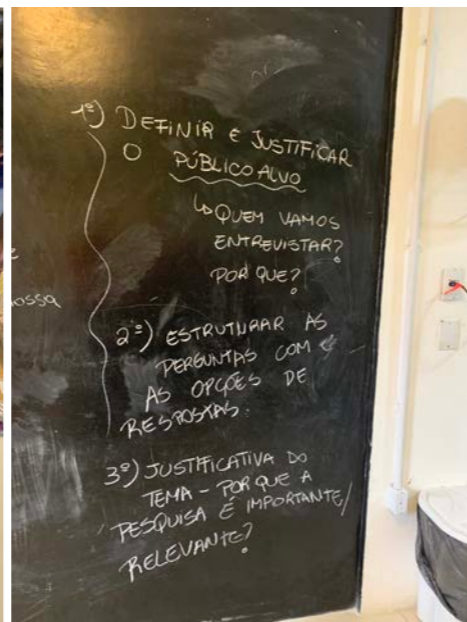 1º) DEFINIR E JUSTIFICAR
O PÚBLICO ALVO
↳ QUEM VAMOS
ENTREVISTAR?
POR QUE?
ossa
2º) ESTRUTURAR AS
PERGUNTAS COM
AS OPÇÕES DE
RESPOSTAS.
3º) JUSTIFICATIVA DO
TEMA - POR QUE A
PESQUISA É IMPORTANTE/
RELEVANTE?